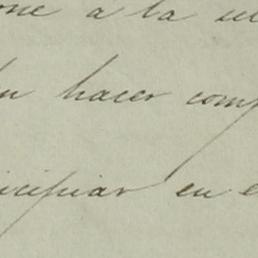 a la
hacer comp
icipiar en e